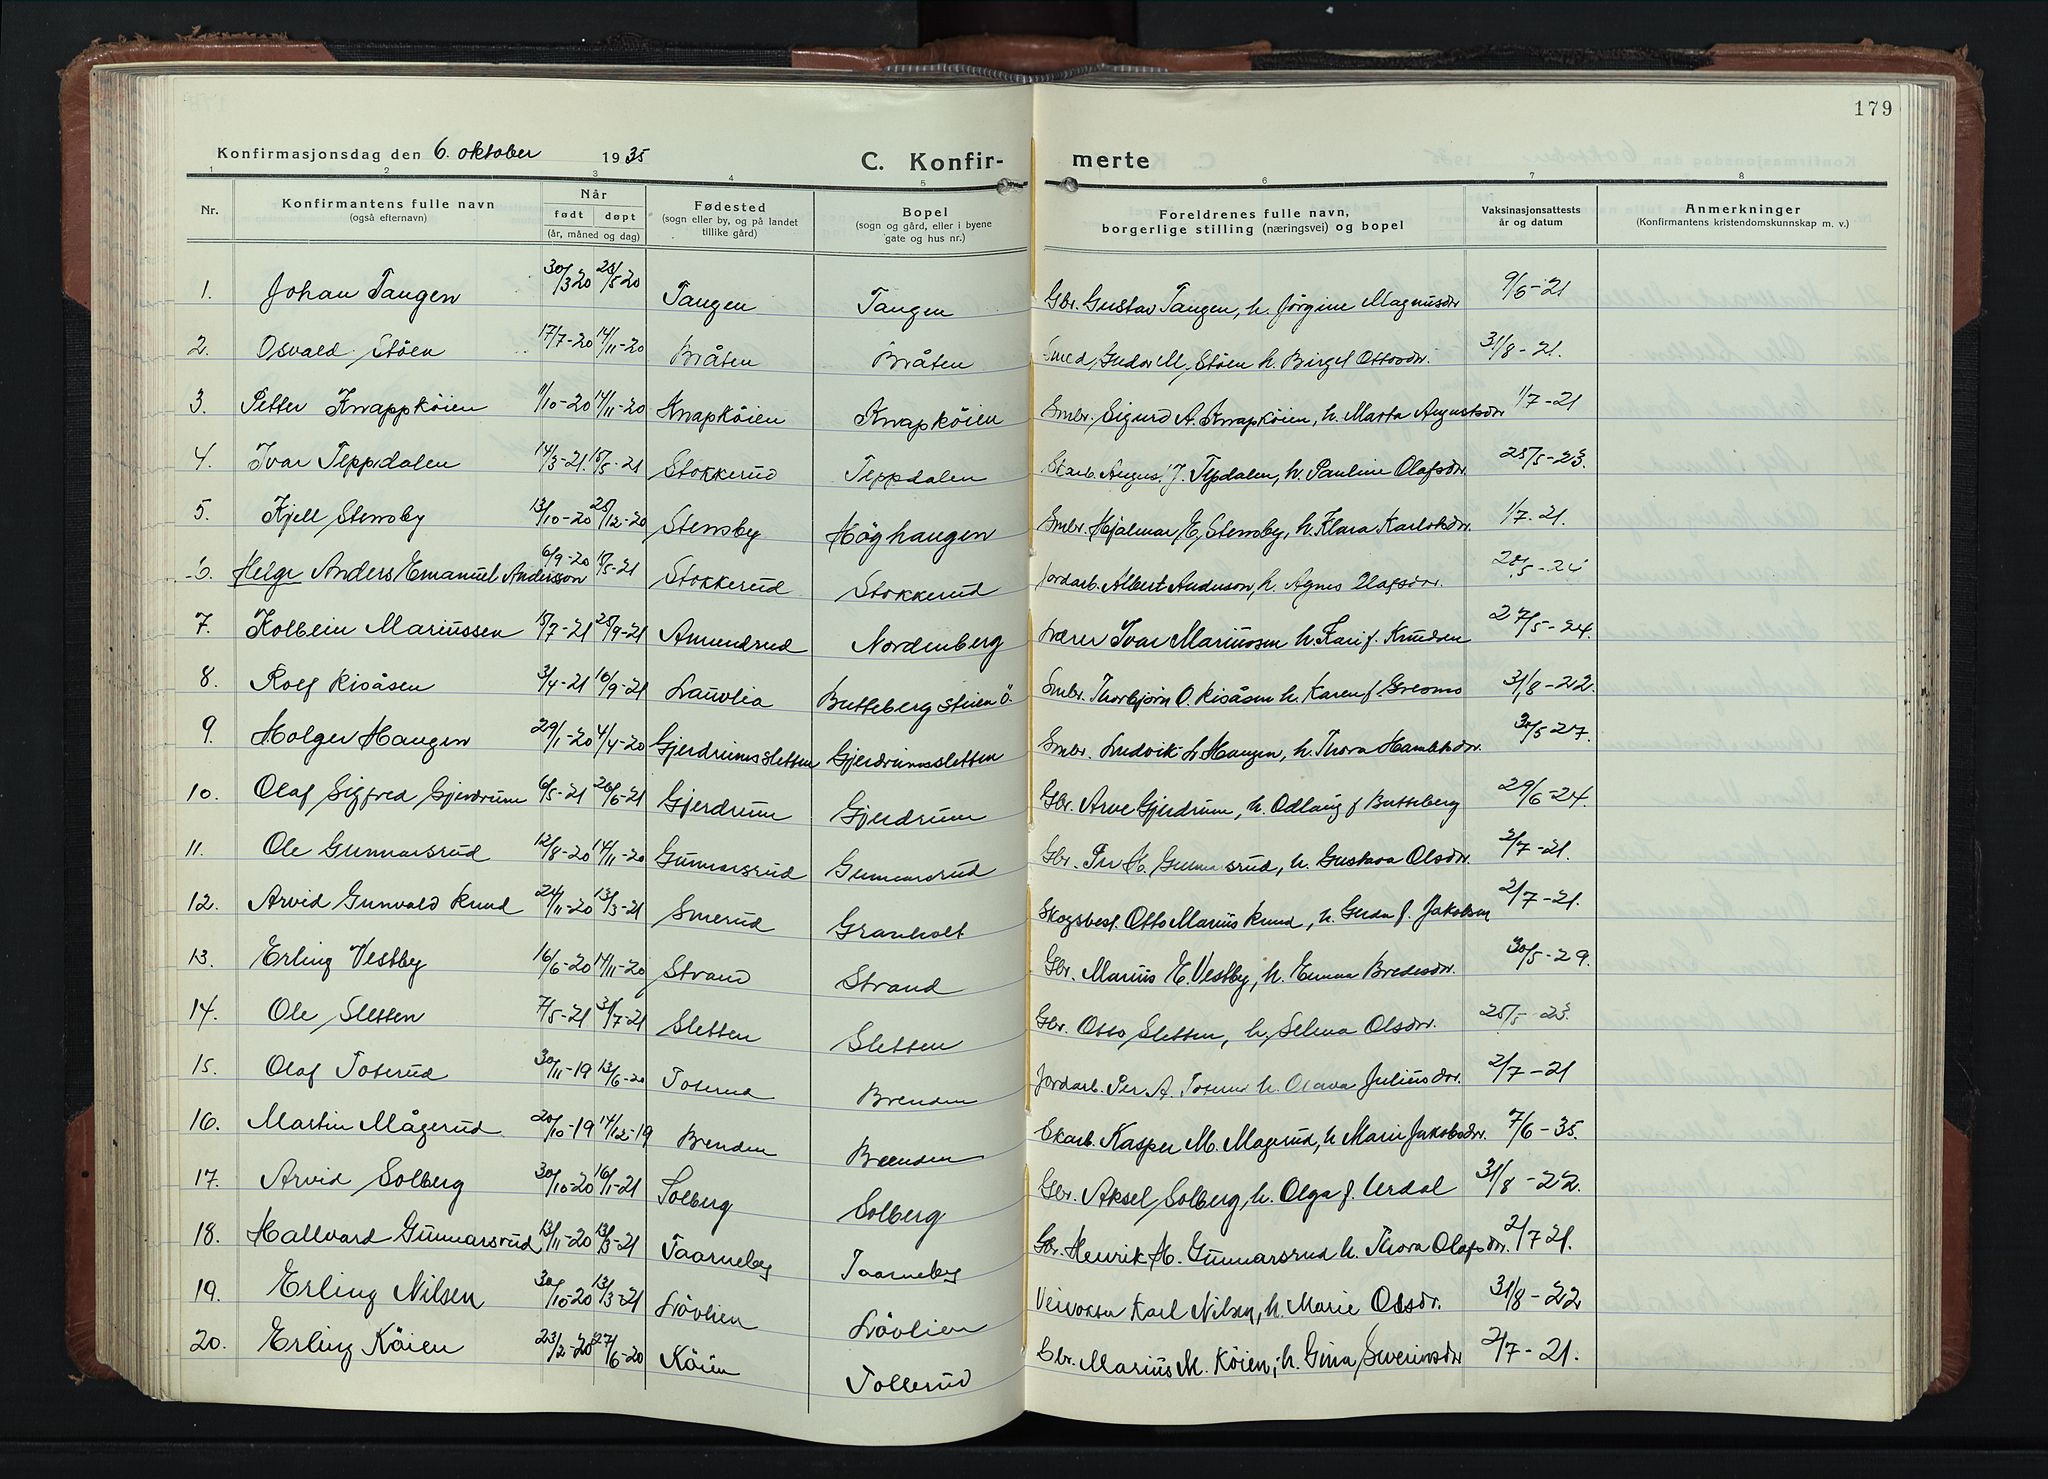 179
Konfirmasjonsdag den 6. oktober 1935 C. Konfir- merte
1 2 3 4 5 6 7 8
Nr. Konfirmantens fulle navn (også efternavn) Når født døpt (år, måned og dag) Fødested (sogn eller by, og på landet tillike gård) Bopel (sogn og gård, eller i byene gate og hus nr.) Foreldrenes fulle navn, borgerlige stilling (næringsvei) og bopel Vaksinasjonsattests år og datum Anmerkninger (Konfirmantens kristendomskunnskap m. v.)
1. Johan Tangen 30/3 20 24/5-20 Tangen Tangen Gbr. Gustav Tangen, h. Jörgine Magnusdr 9/6-21
2. Osvald Stöen 17/7-20 14/11-20 Bråten Bråten Smed, Gudor M. Stöen h. Birgit Ottosdr. 31/8-21.
3. Petter Knappköien 11/10-20 14/11-20 Knapköien Knapköien Smbr. Sigurd A. Knapköien, h. Marta Augustsdr 1/7-21
4. Ivar Teppdalen 14/3-21. 15/5-21 Stokkerud Teppdalen August J. Tepdalen, h. Pauline Olafsdr. 25/5-23.
5. Kjell Stensby 13/10-20 25/12-20 Stensby Höghaugen Smbr. Hjalmar E. Stensby, h. Klara Karlsdr. 1/7-21.
6. Helge Anders Emanuel Andersson 6/9-20 15/5-21 Stokkerud Stokkerud Jordarb. Albert Anderson, h. Agnes Olafsdr. 28/5-24
7. Kolbein Mariussen 15/7-21 25/9-21 Amundrud Nordenberg Lærer Ivar Mariussen h. Kari f. Knudsen 27/5-24.
8. Rolf Risåsen 3/4-21 10/9-21 Lauvlia Butteberg stuen Ö. Smbr. Thorbjörn O. Risåsen h. Karen f. Gresmo 31/8-22.
9. Holger Haugen 29/1-20 4/4-20 Gjerdrumssletten Gjerdrumssletten Smbr. Ludvik L. Haugen, h. Thora Hamletsdr. 31/5-27.
10. Olaf Sigfred Gjerdrum 6/5-21 26/6-21 Gjerdrum Gjerdrum Gbr. Arve Gjerdrum, h. Odlaug f Butteberg 29/6-24.
11. Ole Gunnarsrud 12/8-20 14/11-20 Gunnarsrud Gunnarsrud Gbr. H. Gunnarsrud, h. Gustava Olsdr. 2/7-21.
12. Arvid Gunvald Ruud 24/11-20 13/3-21 Smerud Granholt Skogsbest. Otto Marius Ruud, h. Gerda f. Jakobsen 2/7-21.
13. Erling Vestby 16/6-20 14/11-20 Strand Strand Gbr. Marius E. Vestby, h. Emma Bredesdr. 30/5-29.
14. Ole Sletten 7/5-21 31/7-21 Sletten Sletten Gbr. Otto Sletten, h. Selma Olsdr. 25/5-23.
15. Olaf Toterud 30/11-19 13/6-20 Toterud Brenden Jordarb. Per A. Toterud h. Olava Juliusdr. 2/7-21
16. Martin Mågerud 20/10-19 14/12-19 Brenden Brenden Kasper M. Magerud, h Marie Jakobsdr. 7/6-35.
17. Arvid Solberg 30/10-20 16/1-21 Solberg Solberg Gbr. Aksel Solberg, h. Olga f. Urdal 31/8-22.
18. Hallvard Gunnarsrud 13/11-20 13/3-21 Taarneby Taarneby Gbr. Henrik H. Gunnarsrud h. Thora Olafsdr. 2/7 21.
19. Erling Nilsen 30/10-20 13/3-21 Lövlien Lövlien Veivokter Karl Nilsen, h. Marie Olsdr. 31/8-22
20. Erling Köien 23/2-20 27/6-20 Köien Tollerud Gbr. Marius M. Köien, h. Gina Sverinsdr 2/7-21.